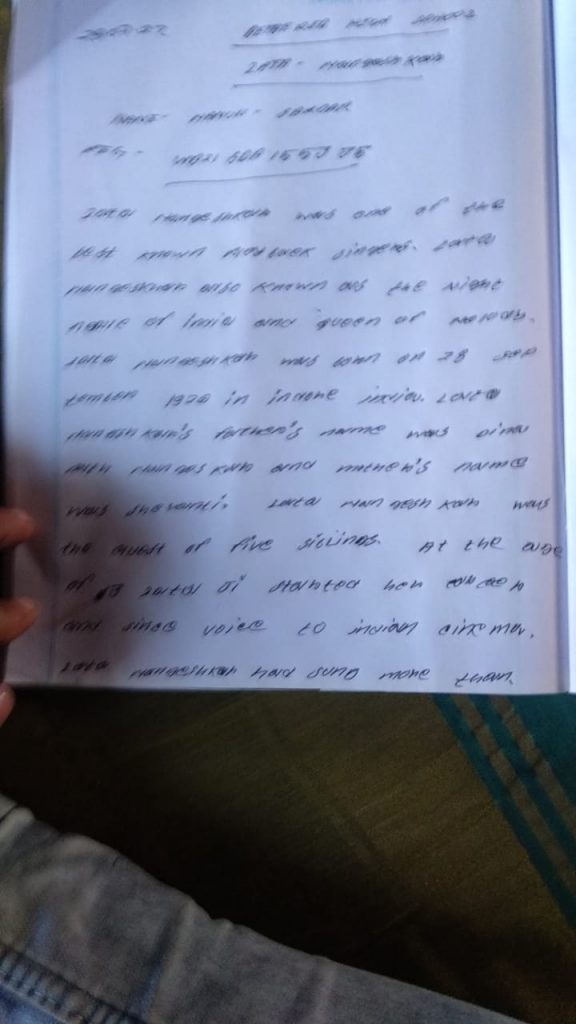 LATA - Mangeshkar
NAME-
REG -
Lata Mangeshkar was one of the
best known playback singers. Lata
Mangeskar also known as the Night
ngale of India and queen of Melody.
Lata Mangeshkar was born on 28 Sep
tember 1929 in indore india. Lata
Mangeshkar's father's name was Dina
nath Mangeskar and mother's name
was shevanti. Lata Mangeshkar was
the eldest of five siblings. At the age
of 13 Lata Ji started her career
and since voice to indian cinema.
Lata Mangeshkar had sung more than